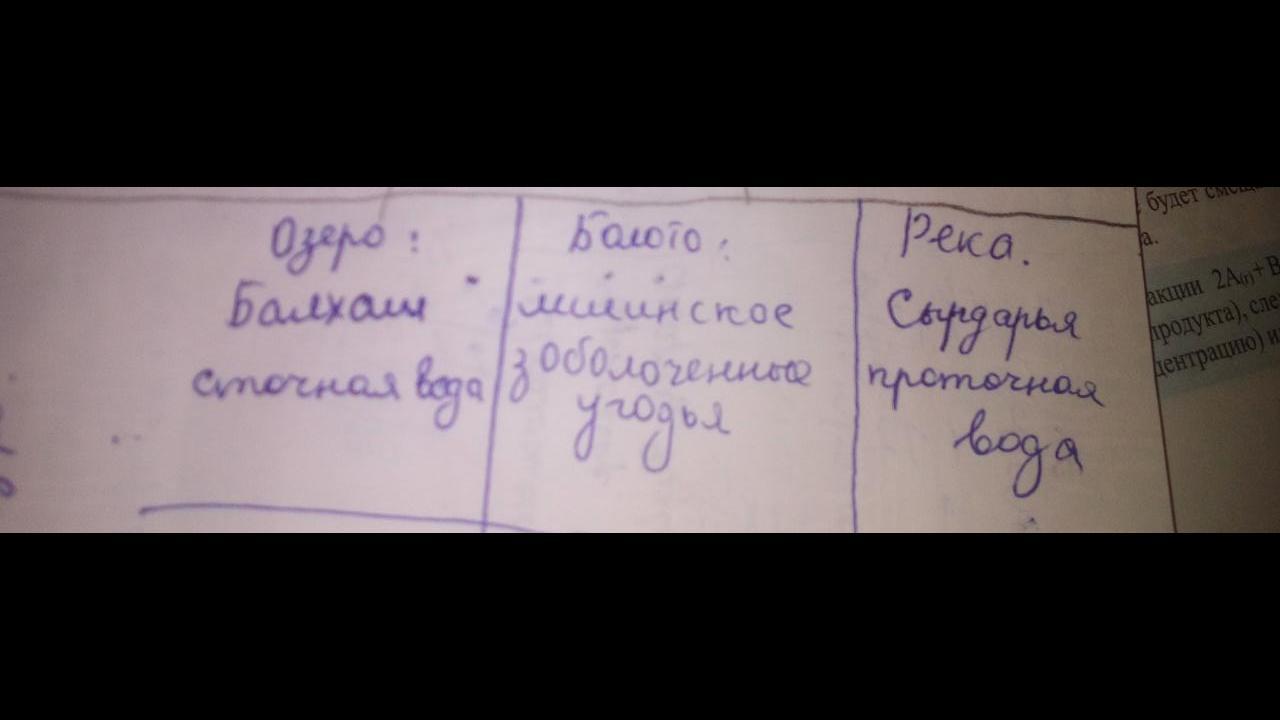 Озеро :
Балхаш
сточная вода
Болото :
мшинское
зоболоченные
угодья
Река.
Сырдарья
проточная
вода
будет
а.
акции 2A(г)+ B
продукта), сле
центрацию) и